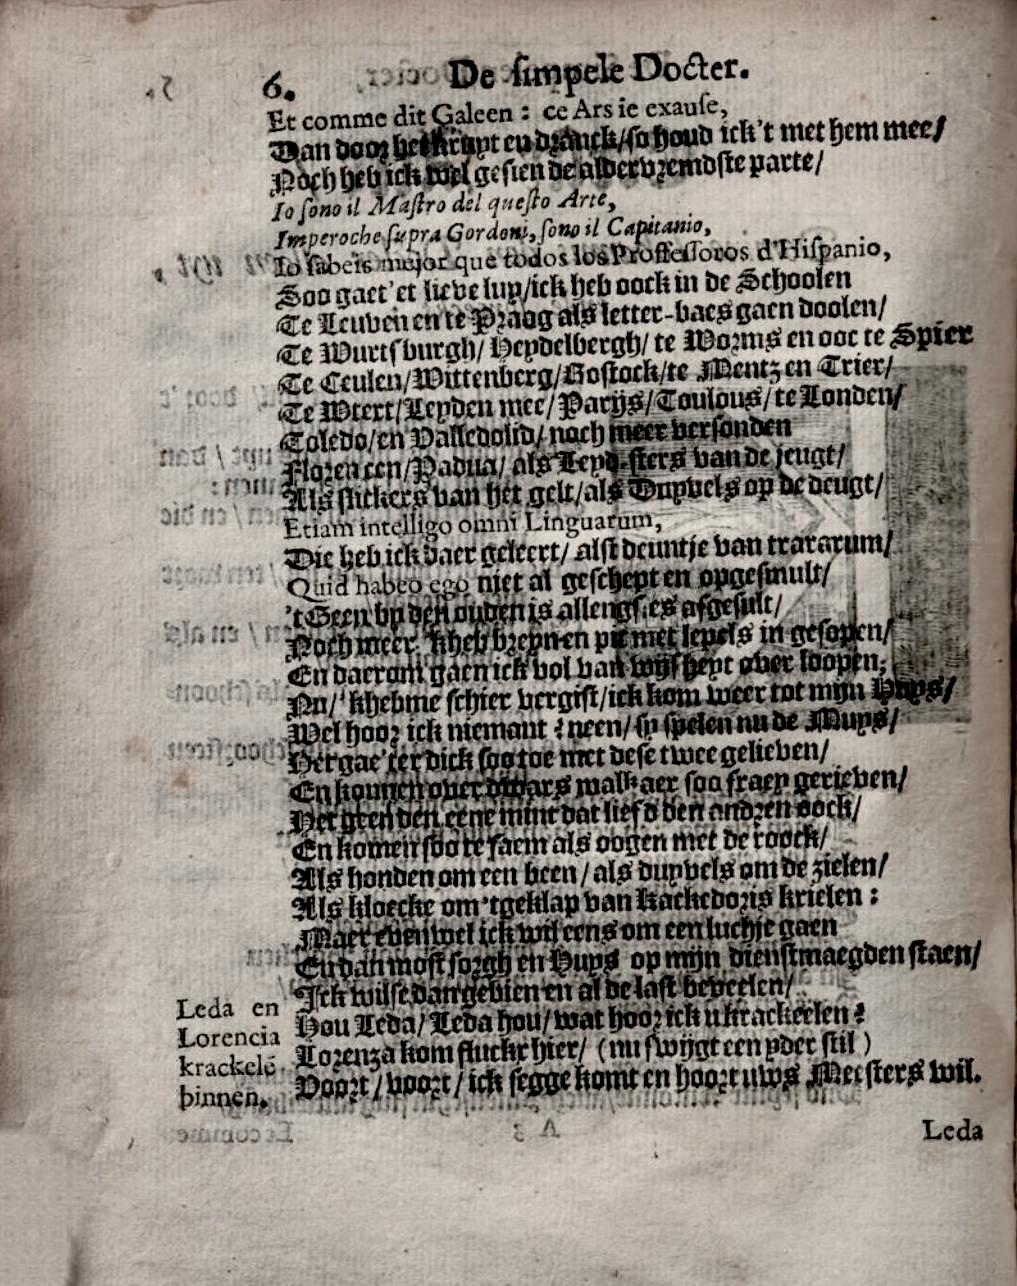 6. De simpele Docter.
Et comme dit Galeen : ce Ars ie exause,
Dan door het kruyt en dranck/so houd ick't met hem mee/
Noch heb ick wel gesien de aldervremdste parte/
Io sono il Mastro del questo Arte,
Imperoche supra Gordoni, sono il Capitanio,
Io sabeis mejor que todos los Proffessoros d'Hispanio,
Soo gaet'et lieve luy/ick heb oock in de Schoolen
Te Leuven en te Praag als letter-baes gaen doolen/
Te Wurtsburgh/ Heydelbergh/ te Worms en ooc te Spier
Te Ceulen/Wittenberg/Rostock/te Mentz en Trier/
Te Wtert/Leyden mee/Parijs/Toulous/te Londen/
Toledo/en Valledolid/noch meer versonden
Florencen/Padua/ als Leyd-sters van de jeugt/
Als slickers van het gelt/als Duyvels op de deugt/
Etiam intelligo omni Linguarum,
Die heb ick daer geleert/ alst deuntje van trararum/
Quid habeo ego niet al geschept en opgesmult/
't Geen by den ouden is allengskes afgesult/
Noch meer, 'kheb breyn en pit met lepels in gesopen/
En daerom gaen ick vol van wijsheyt over loopen;
Nu/'khebme schier vergist/ick kom weer tot mijn Huys/
Wel hoor ick niemant ? neen/ sy spelen nu de Muys/
Het gae'ter dick soo toe met dese twee gelieven/
En konnen over dwars malkaer soo fraey gerieven/
Het geen den eene mint dat liefd den andren oock/
En komen soo te saem als oogen met de roock/
Als honden om een been/ als duyvels om de zielen/
Als kloecke om 'tgeklap van Kackedoris krielen :
Maer evenwel ick wil eens om een luchje gaen
En dan most sorgh en Huys op mijn dienstmaegden staen/
Ick wilse dan gebien en al de last beveelen/
Leda en
Lorencia
krackelē
binnen.
Hou Leda/ Leda hou/ wat hoor ick u krackeelen ?
Lorenza kom fluckx hier/ ( nu swijgt een yder stil )
Voort/ voort/ ick segge komt en hoort uws Meesters wil.
Leda